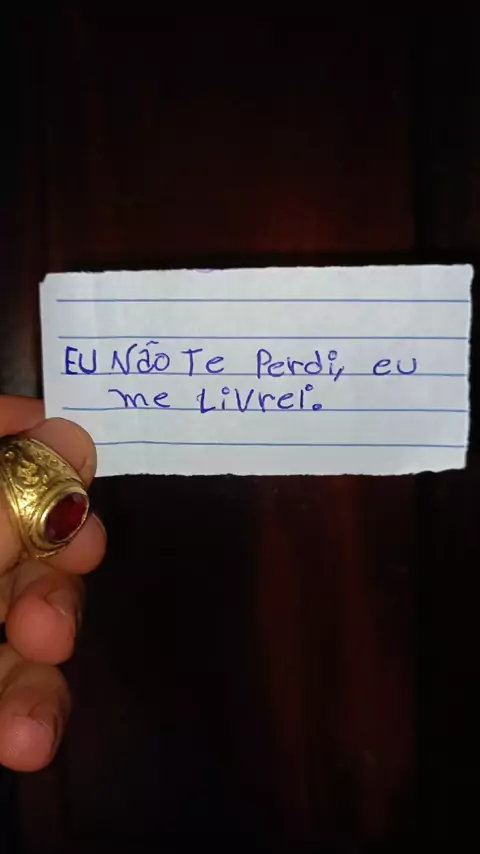 EU Não Te Perdi, eu
me Livrei.